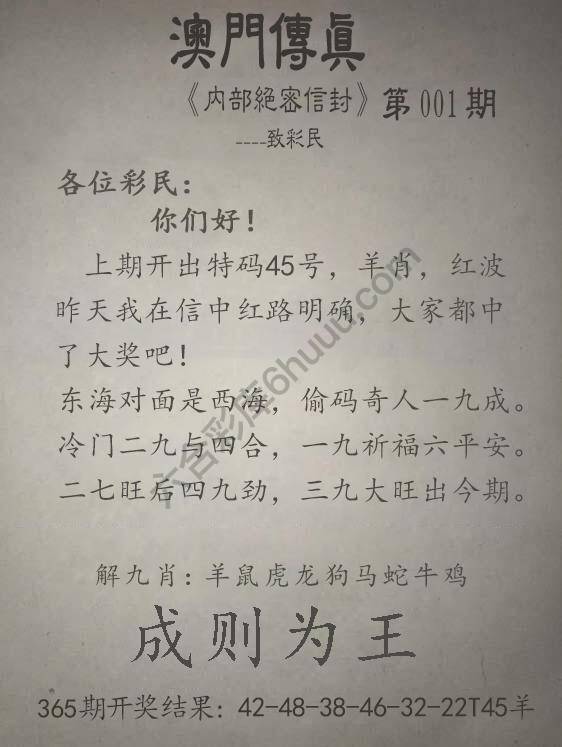 澳門傳眞
《内部絕密信封》第001期
----致彩民
各位彩民：
你们好！
上期开出特码45号，羊肖，红波
昨天我在信中红路明确，大家都中
了大奖吧！
东海对面是西海，偷码奇人一九成。
冷门二九与四合，一九祈福六平安。
二七旺后四九劲，三九大旺出今期。
解九肖：羊鼠虎龙狗马蛇牛鸡
成则为王
365期开奖结果：42-48-38-46-32-22T45羊
六合彩库6huuu.com